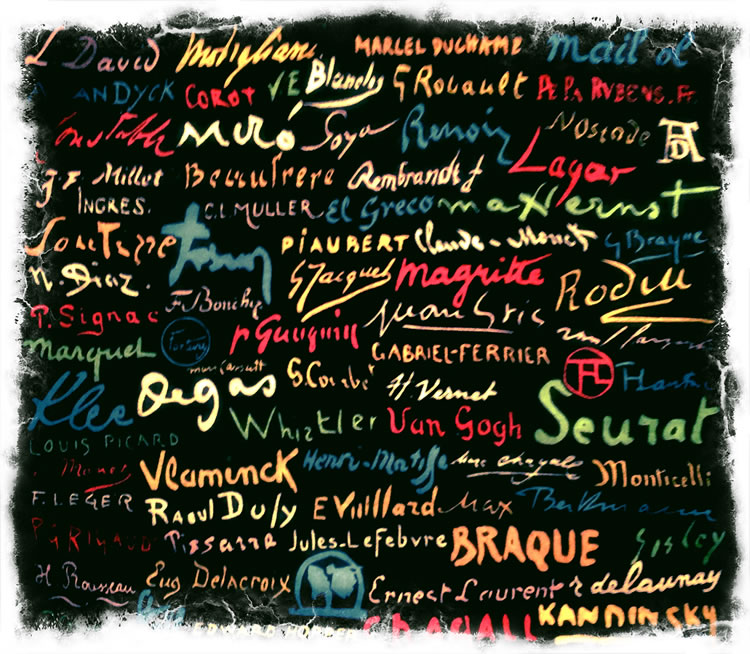 L David Modigliani MARCEL DUCHAMP
VAN DYCK COROT Blanche G Rouault PE PA RUBENS. Fr.
Constable Miró Goya Renoir
AD
J. F. Millet Rembrandt Lagar
INGRES. C. L. MULLER El Greco max ernst
PIAUBERT Claude Monet G Braque
N. Diaz. G Jacquet magritte Rodin
P. Signac F. Boucher Juan Gris
marquet p Gauguin GABRIEL-FERRIER
mary cassatt G. Courbet HTL
Klee Degas H. Vernet
Whistler Van Gogh Seurat
LOUIS PICARD
Manet Vlaminck Henri-Matisse Marc Chagall Monticelli
F. LEGER Raoul Dufy E Vuillard Max Beckmann
RIGAUD Pissarro Jules-Lefebvre BRAQUE Sisley
H. Rousseau Eug Delacroix Ernest Laurent r delaunay
EDWARD HOPPER CHAGALL KANDINSKY